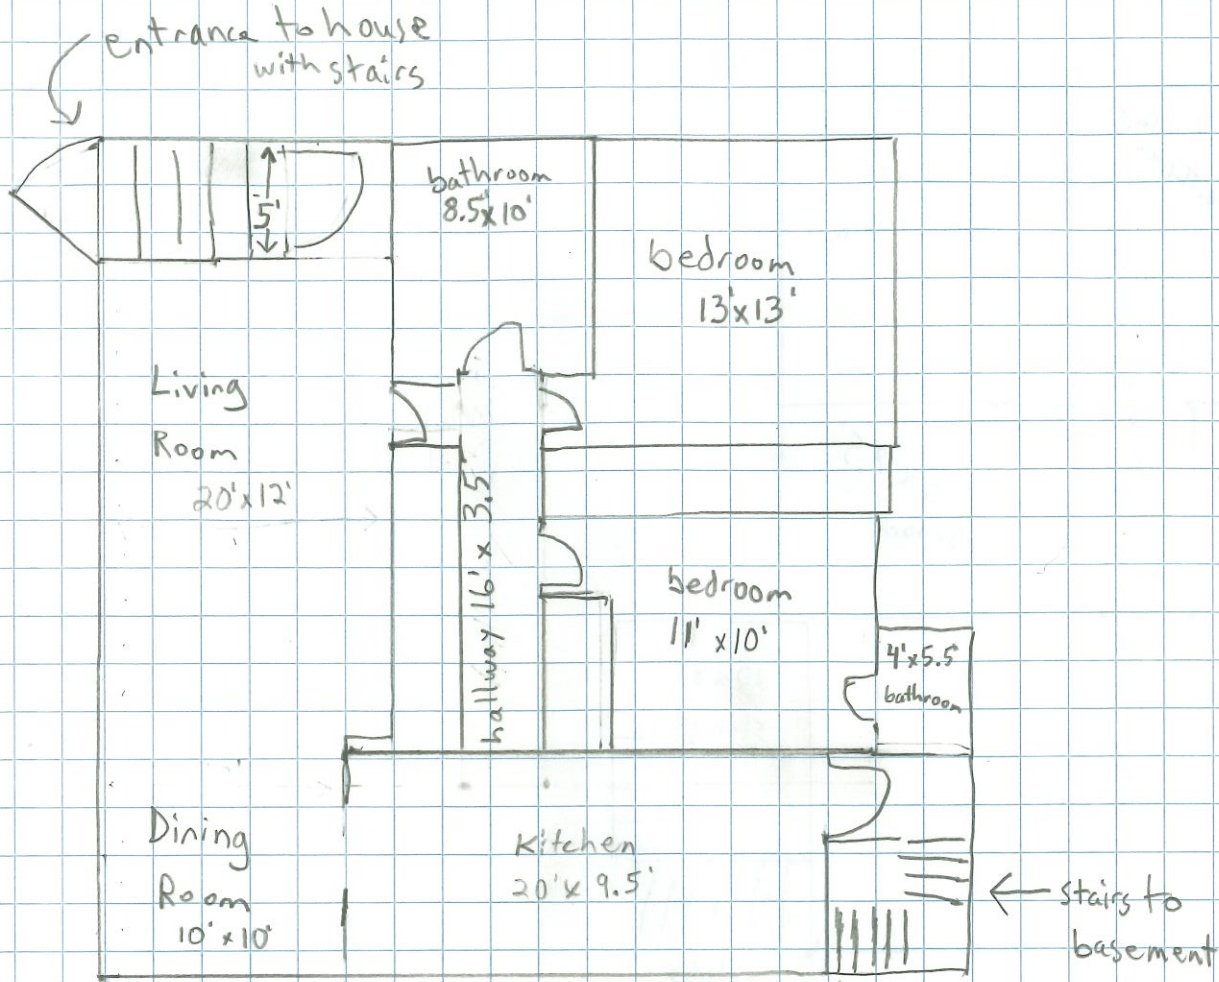 entrance to house
with stairs
5'
bathroom
8.5'x10'
bedroom
13'x13'
Living
Room
20'x12'
hallway 16' x 3.5'
bedroom
11' x10'
4'x5.5'
bathroom
Dining
Room
10'x10'
Kitchen
20'x 9.5'
stairs to
basement